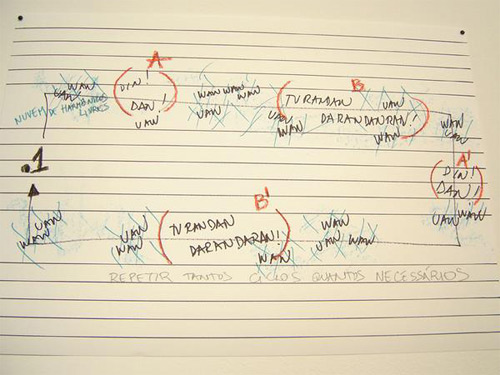 A
UAW WAW
DIN!
DAN!
UAW
NUVEM DE HARMÔNICOS
LIVRES
WAW WAW WAW
UAW
B
TURANDAN
DARANDANRAN!
UAW
UAW
WAW
WAW
WAW
UAW
.1
A'
DIN!
DAN!
UAW
WAW
UAW
WAW
UAW
WAW
B'
TURANDAN
DARANDARAN!
WAW
WAW
UAW WAW
REPETIR TANTOS CICLOS QUANTOS NECESSÁRIOS